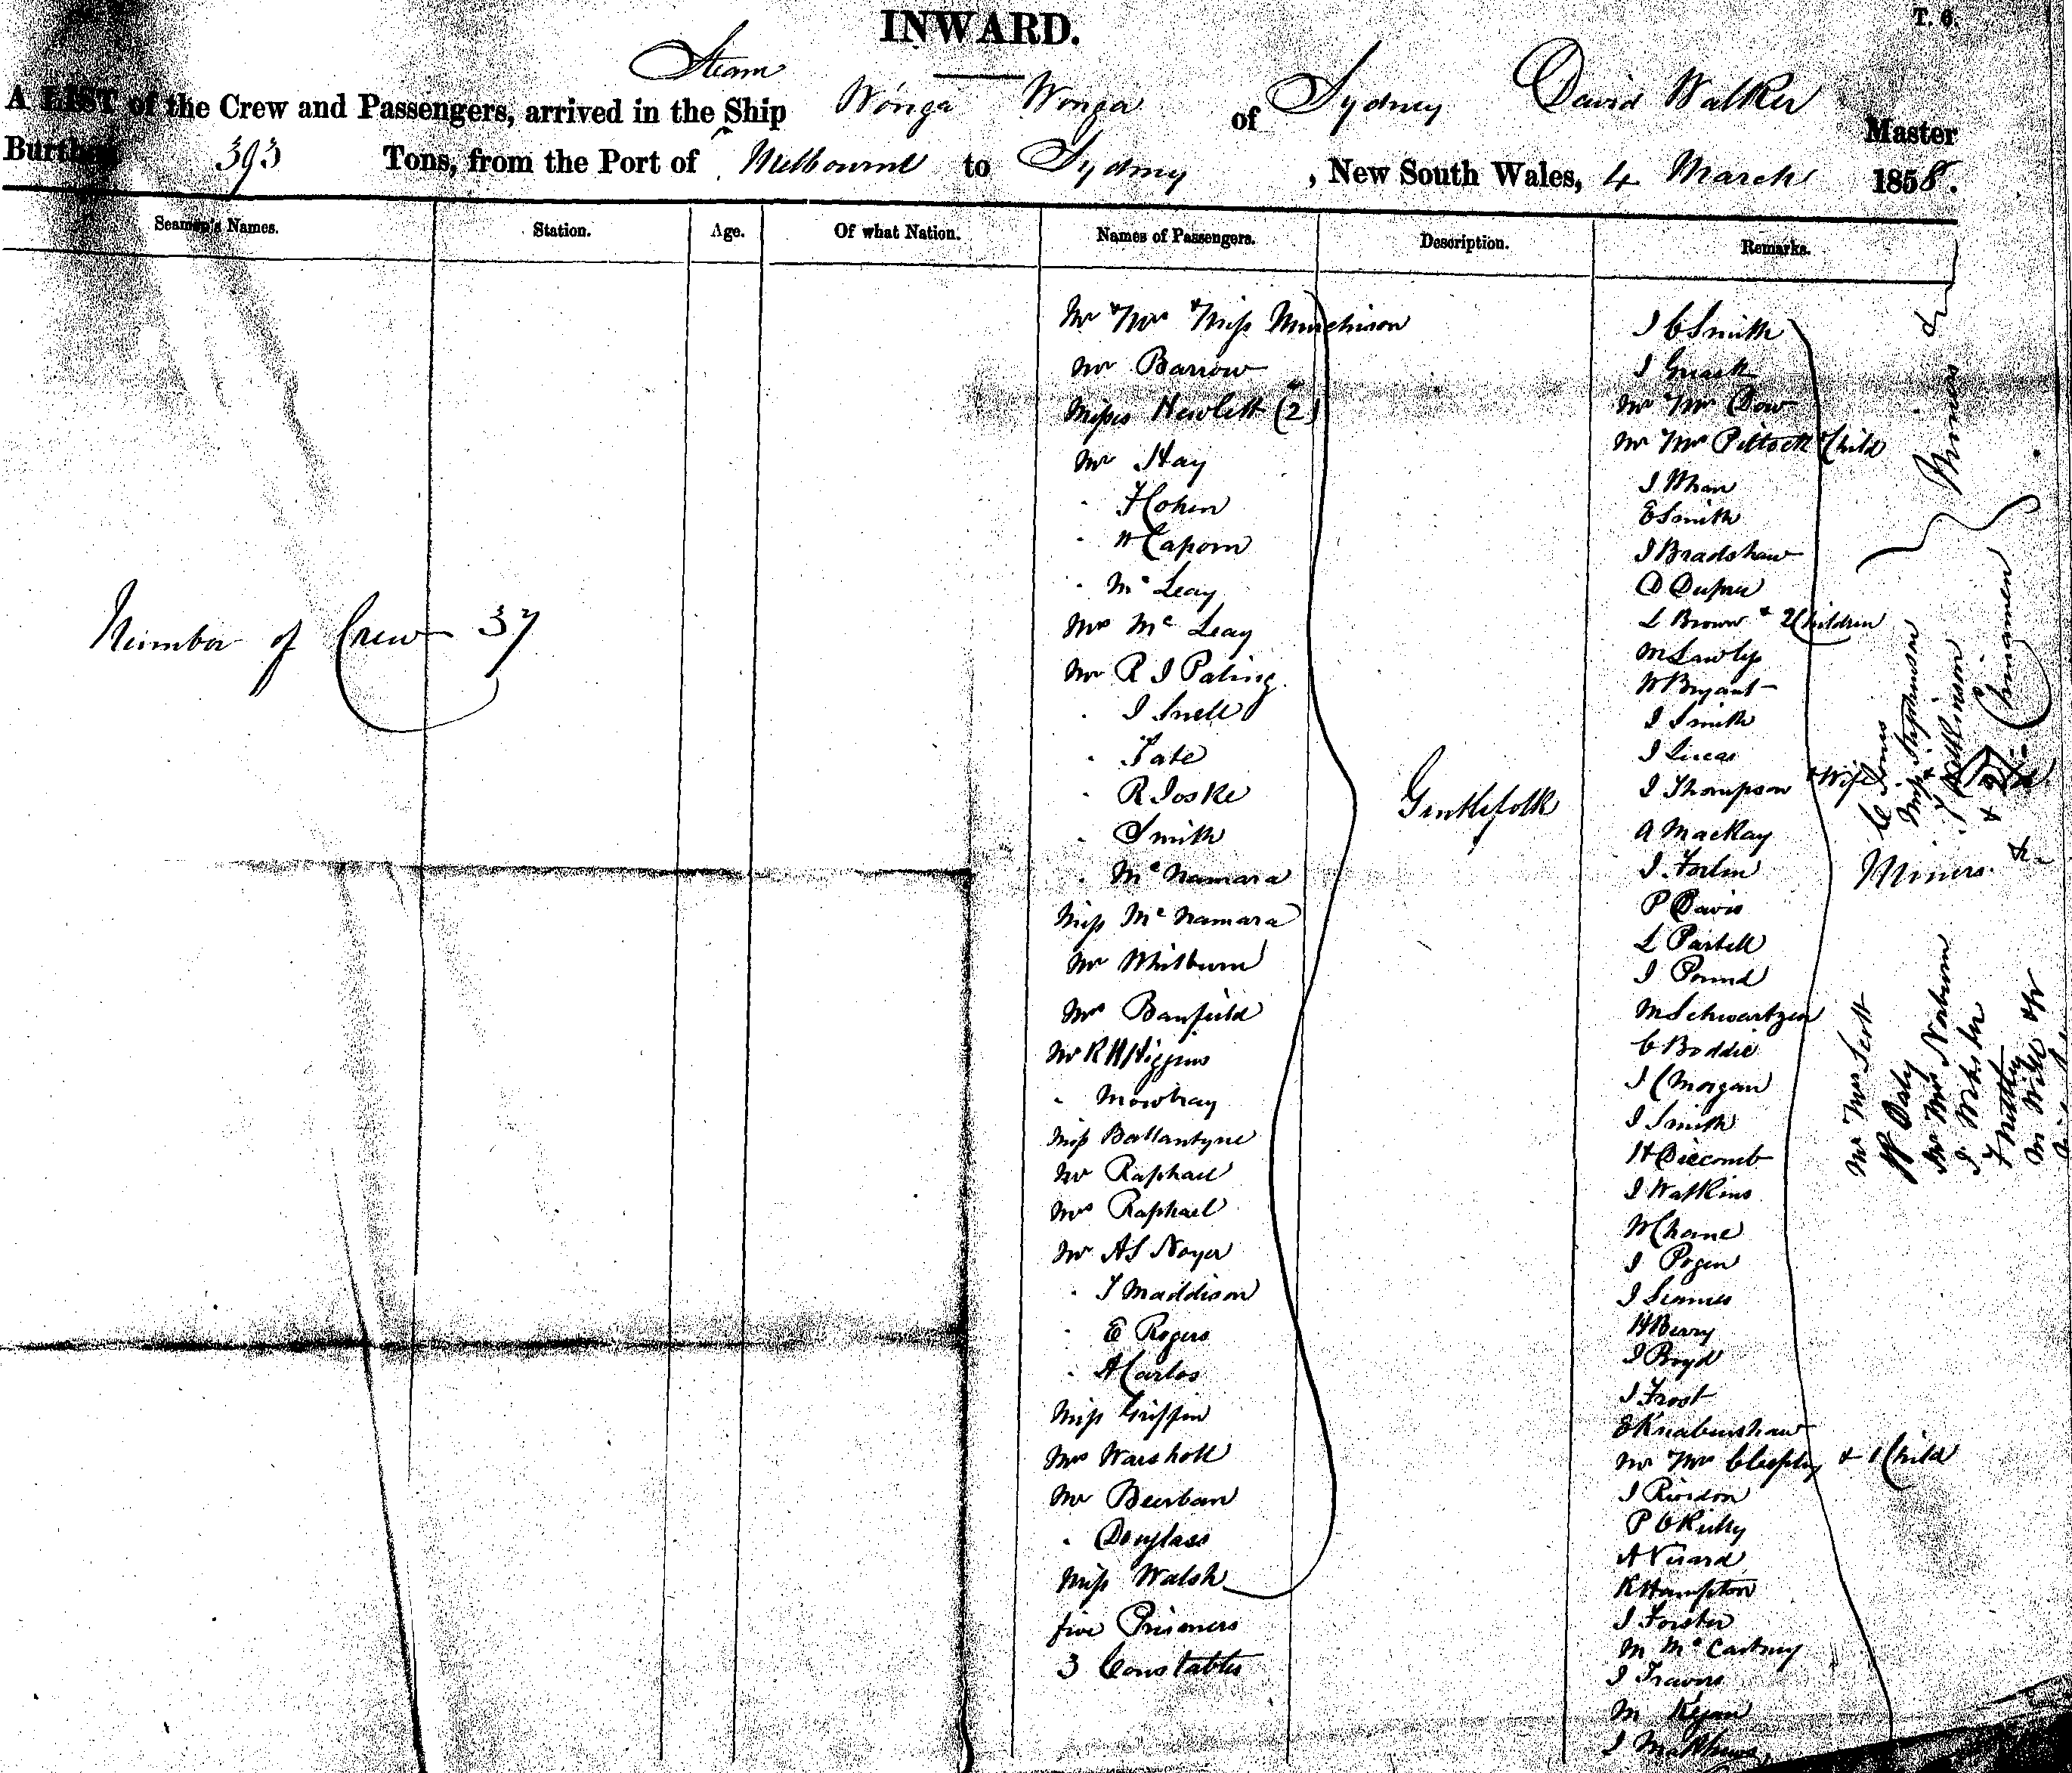 INWARD.
T. 6.
Steam
A LIST of the Crew and Passengers, arrived in the Ship Wonga Wonga of Sydney David Walker Master
Burthen 393 Tons, from the Port of Melbourne to Sydney, New South Wales, 4 March 1858.
Seamen's Names. Station. Age. Of what Nation. Names of Passengers. Description. Remarks.
Number of Crew 37
Mr & Mrs & Miss Murchison
Mr Barrow
Misses Hewlett (2)
Mr Hay
" F Cohen
" W Caporn
" Mc Leay
Mrs Mc Leay
Mr R J Paling
" J Snell
" Tate
" R Joske
" Smith
" Mc Namara
Miss Mc Namara
Mr Whitburn
Mrs Banfield
Mr R H Higgins
" Mowbray
Miss Ballantyne
Mr Raphael
Mrs Raphael
Mr A S Noyer
" T Maddison
" E Rogers
" A Carlos
Miss Griffin
Mrs
Mr
" Douglass
Miss Walsh
five Prisoners
3 Constables
Gentlefolk
J C Smith
J
Mr & Mrs Dow
Mr & Mrs Pittock & Child
J Whan
E Smith
J Bradshaw
D Dupre
L Brown & 2 Children
M
W Bryant
J Smith
J Lucas
J Thompson & Wife
A MacKay
J
P Davis
L
J Pound
M Schwartzen
C Boddie
J C Morgan
J Smith
H
J Watkins
W
J
J
H Berry
J Boyd
J Frost
E
Mr & Mrs & 1 Child
J Riordon
P O Reilly
A
R Hampton
J Forster
M Mc Cartney
J Travers
M
J Matthews
Miners &c
C Jones
Miss Stephenson
Chinamen
Miners &c
Mr & Mrs Scott
Daly
Mr & Mrs
J Webster